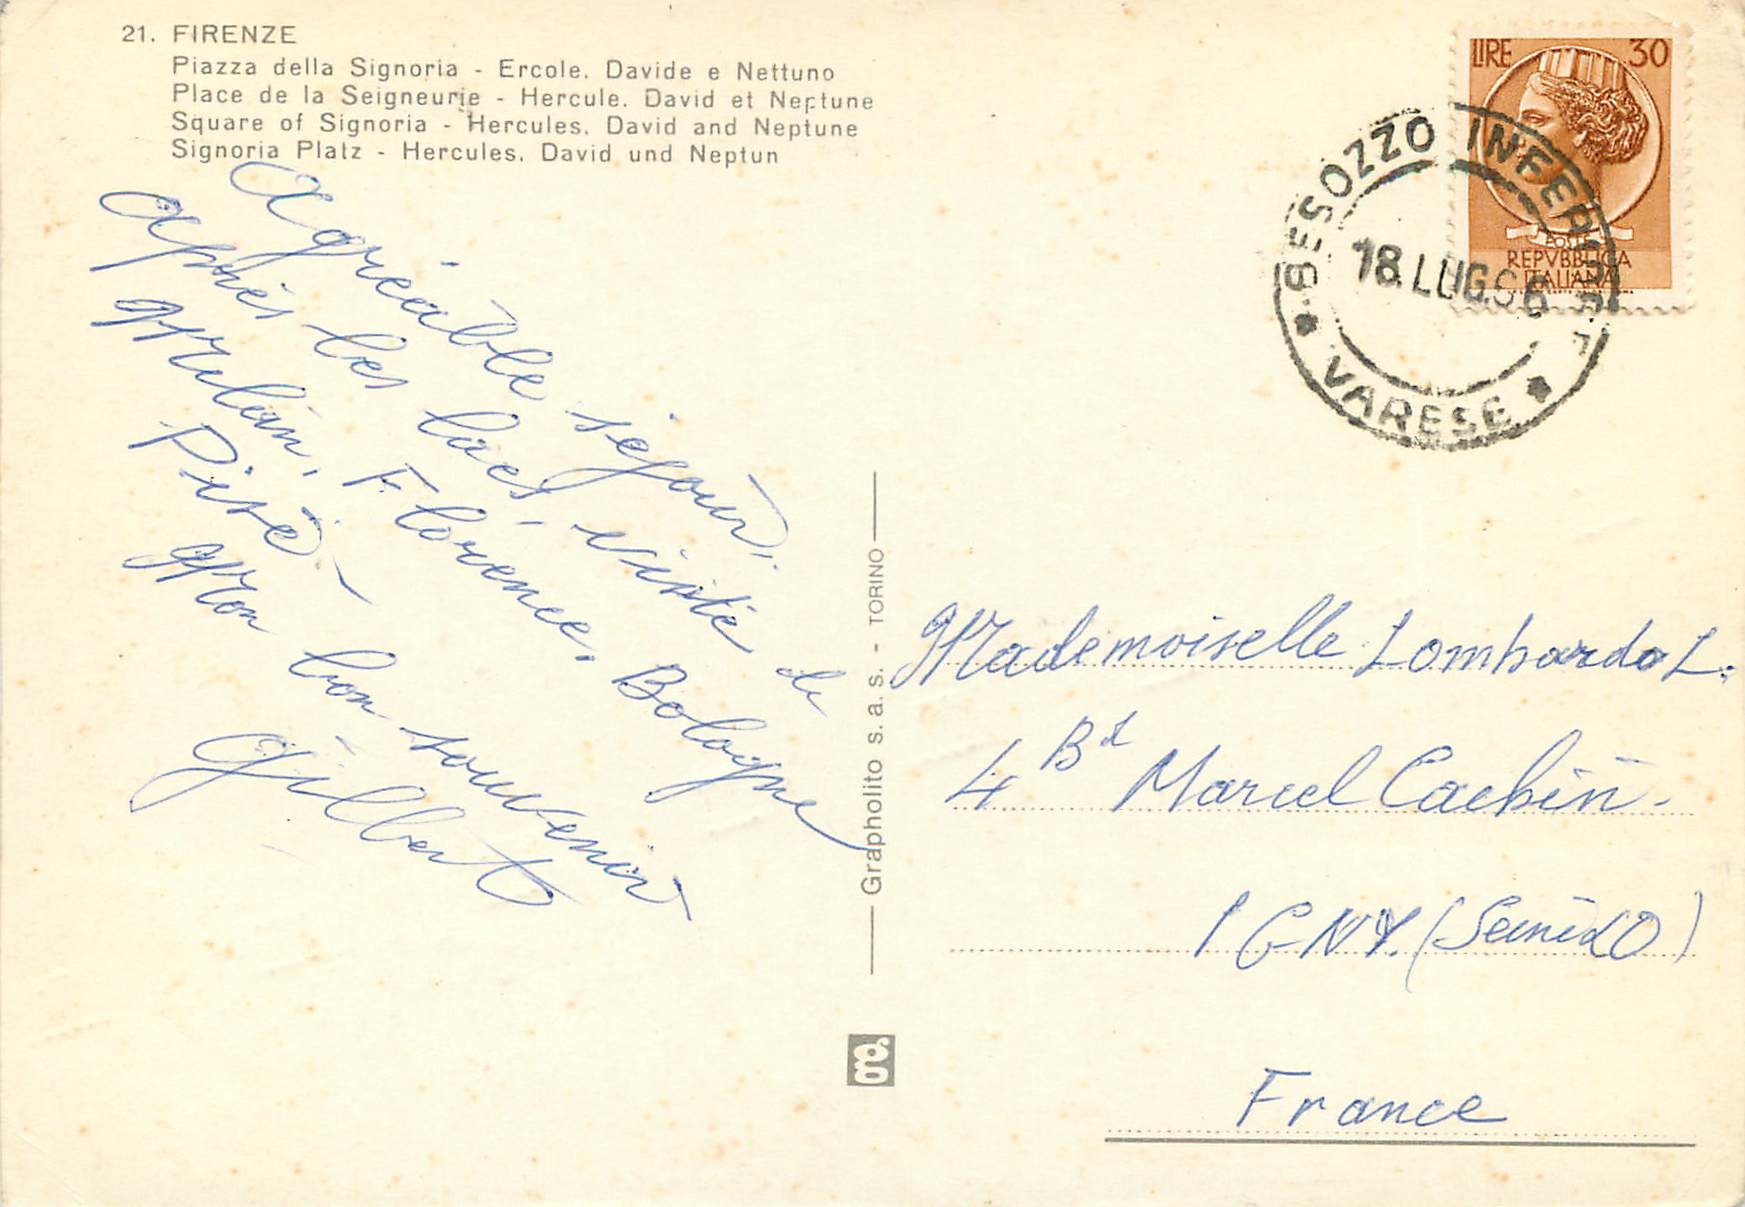 21. FIRENZE
Piazza della Signoria - Ercole. Davide e Nettuno
Place de la Seigneurie - Hercule. David et Neptune
Square of Signoria - Hercules. David and Neptune
Signoria Platz - Hercules. David und Neptun
Agréable séjour,
après les lacs, visite de
Milan, Florence, Bologne
Pise -
Mon bon souvenir
Gilbert
Grapholito s. a. s. - TORINO
g
LIRE 30
POSTE
REPVBBLICA
ITALIANA
BESOZZO INFERIORE
18.LUG.
VARESE
Mademoiselle Lombardo L.
4 Bd Marcel Cachin.
IGNY. (Seine&O)
France